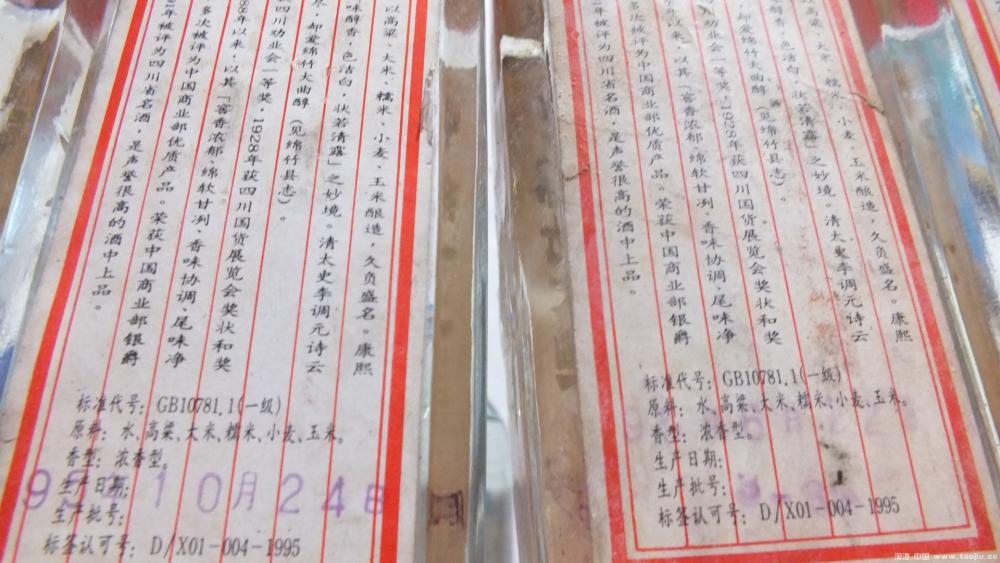 以高粱、大米、糯米、小麦、玉米酿造，久负盛名。康熙
味醇香，色洁白，状若清露」之妙境。清太史李调元诗云
尽，却爱绵竹大曲醇（见绵竹县志）。
四川劝业会一等奖，1928年获四川国货展览会奖状和奖
年以来，以其「窖香浓郁、绵软甘洌、香味协调、尾味净
多次被评为中国商业部优质产品。荣获中国商业部银爵
年被评为四川省名酒，是声誉很高的酒中上品。
标准代号：GB10781.1(一级)
原料：水、高粱、大米、糯米、小麦、玉米。
香型：浓香型。
生产日期：
10月24日
生产批号：
标签认可号：D/X01-004-1995
、大米，糯米、小麦、玉米酿造，久负盛名。康熙
香，色洁白，状若清露」之妙境。清太史李调元诗云
却爱绵竹大曲醇（见绵竹县志）。
劝业会一等奖，1928年获四川国货展览会奖状和奖
来，以其「窖香浓郁、绵软甘洌、香味协调、尾味净
次被评为中国商业部优质产品。荣获中国商业部银爵
被评为四川省名酒，是声誉很高的酒中上品。
标准代号：GB10781.1(一级)
原料：水、高粱、大米、糯米、小麦、玉米。
香型：浓香型。
生产日期：
生产批号：
标签认可号：D/X01-004-1995
淘酒.中国 www.taojiu.cc